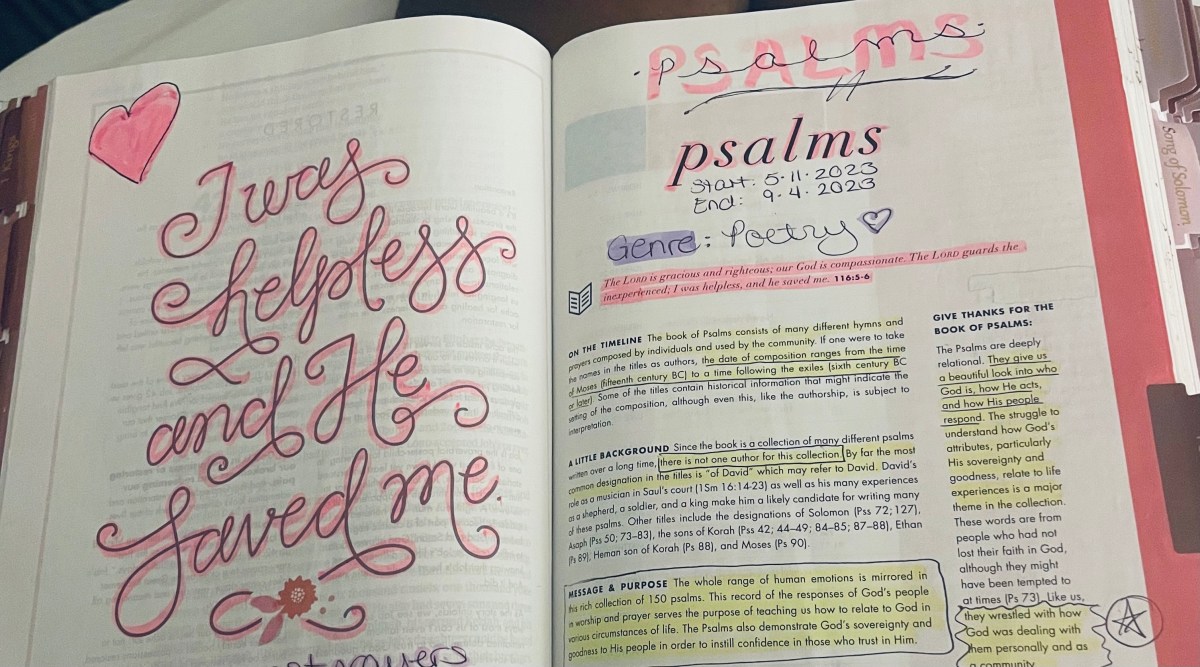 I was
helpless
and He
saved me.
PSALMS
psalms
psalms
Start: 5.11.2023
End: 9.4.2023
Genre: Poetry
The LORD is gracious and righteous; our God is compassionate. The LORD guards the
inexperienced; I was helpless, and he saved me. 116:5-6
ON THE TIMELINE The book of Psalms consists of many different hymns and
prayers composed by individuals and used by the community. If one were to take
the names in the titles as authors, the date of composition ranges from the time
of Moses (fifteenth century BC) to a time following the exiles (sixth century BC
or later). Some of the titles contain historical information that might indicate the
setting of the composition, although even this, like the authorship, is subject to
interpretation.
A LITTLE BACKGROUND Since the book is a collection of many different psalms
written over a long time, there is not one author for this collection. By far the most
common designation in the titles is "of David" which may refer to David. David's
role as a musician in Saul's court (1Sm 16:14-23) as well as his many experiences
as a shepherd, a soldier, and a king make him a likely candidate for writing many
of these psalms. Other titles include the designations of Solomon (Pss 72; 127),
Asaph (Pss 50; 73–83), the sons of Korah (Pss 42; 44–49; 84–85; 87–88), Ethan
(Ps 89), Heman son of Korah (Ps 88), and Moses (Ps 90).
MESSAGE & PURPOSE The whole range of human emotions is mirrored in
this rich collection of 150 psalms. This record of the responses of God's people
in worship and prayer serves the purpose of teaching us how to relate to God in
various circumstances of life. The Psalms also demonstrate God's sovereignty and
goodness to His people in order to instill confidence in those who trust in Him.
GIVE THANKS FOR THE
BOOK OF PSALMS:
The Psalms are deeply
relational. They give us
a beautiful look into who
God is, how He acts,
and how His people
respond. The struggle to
understand how God's
attributes, particularly
His sovereignty and
goodness, relate to life
experiences is a major
theme in the collection.
These words are from
people who had not
lost their faith in God,
although they might
have been tempted to
at times (Ps 73). Like us,
they wrestled with how
God was dealing with
them personally and as
a community.
Song of Solomon
RESTORED